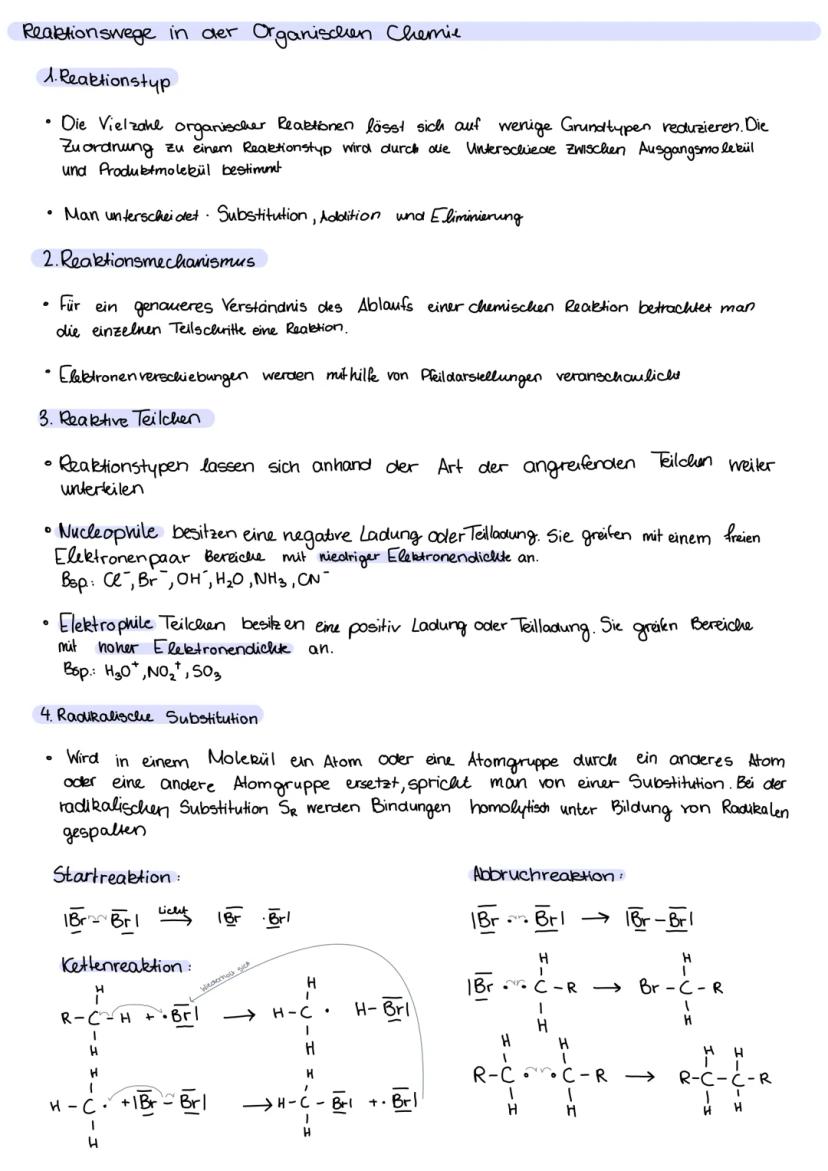 Reaktionswege in der Organischen Chemie
1. Reaktionstyp
• Die Vielzahl organischer Reaktionen lässt sich auf wenige Grundtypen reduzieren. Die
Zuordnung zu einem Reaktionstyp wird durch die Unterschiede zwischen Ausgangsmolekül
und Produktmolekül bestimmt
• Man unterscheidet · Substitution, Addition und Eliminierung
2. Reaktionsmechanismus
• Für ein genaueres Verständnis des Ablaufs einer chemischen Reaktion betrachtet man
die einzelnen Teilschritte eine Reaktion.
• Elektronenverschiebungen werden mithilfe von Pfeildarstellungen veranschaulicht
3. Reaktive Teilchen
• Reaktionstypen lassen sich anhand der Art der angreifenden Teilchen weiter
unterteilen
• Nucleophile besitzen eine negative Ladung oder Teilladung. Sie greifen mit einem freien
Elektronenpaar Bereiche mit niedriger Elektronendichte an.
Bsp.: Cl⁻, Br⁻, OH⁻, H₂O, NH₃, CN⁻
• Elektrophile Teilchen besitzen eine positiv Ladung oder Teilladung. Sie greifen Bereiche
mit hoher Elektronendichte an.
Bsp.: H₃O⁺, NO₂⁺, SO₃
4. Radikalische Substitution
• Wird in einem Molekül ein Atom oder eine Atomgruppe durch ein anderes Atom
oder eine andere Atomgruppe ersetzt, spricht man von einer Substitution. Bei der
radikalischen Substitution S_R werden Bindungen homolytisch unter Bildung von Radikalen
gespalten
Startreaktion:
|Br – Br| Licht → |Br · Br|
Kettenreaktion:
Wiederholt sich
H H
R – C – H + · Br| → H – C · H – Br|
H H
H H
H – C · + |Br – Br| → H – C – Br| + · Br|
H H
Abbruchreaktion:
|Br · · Br| → |Br – Br|
H H
|Br · · C – R → Br – C – R
H H
H H H H
R – C · · C – R → R – C – C – R
H H H H